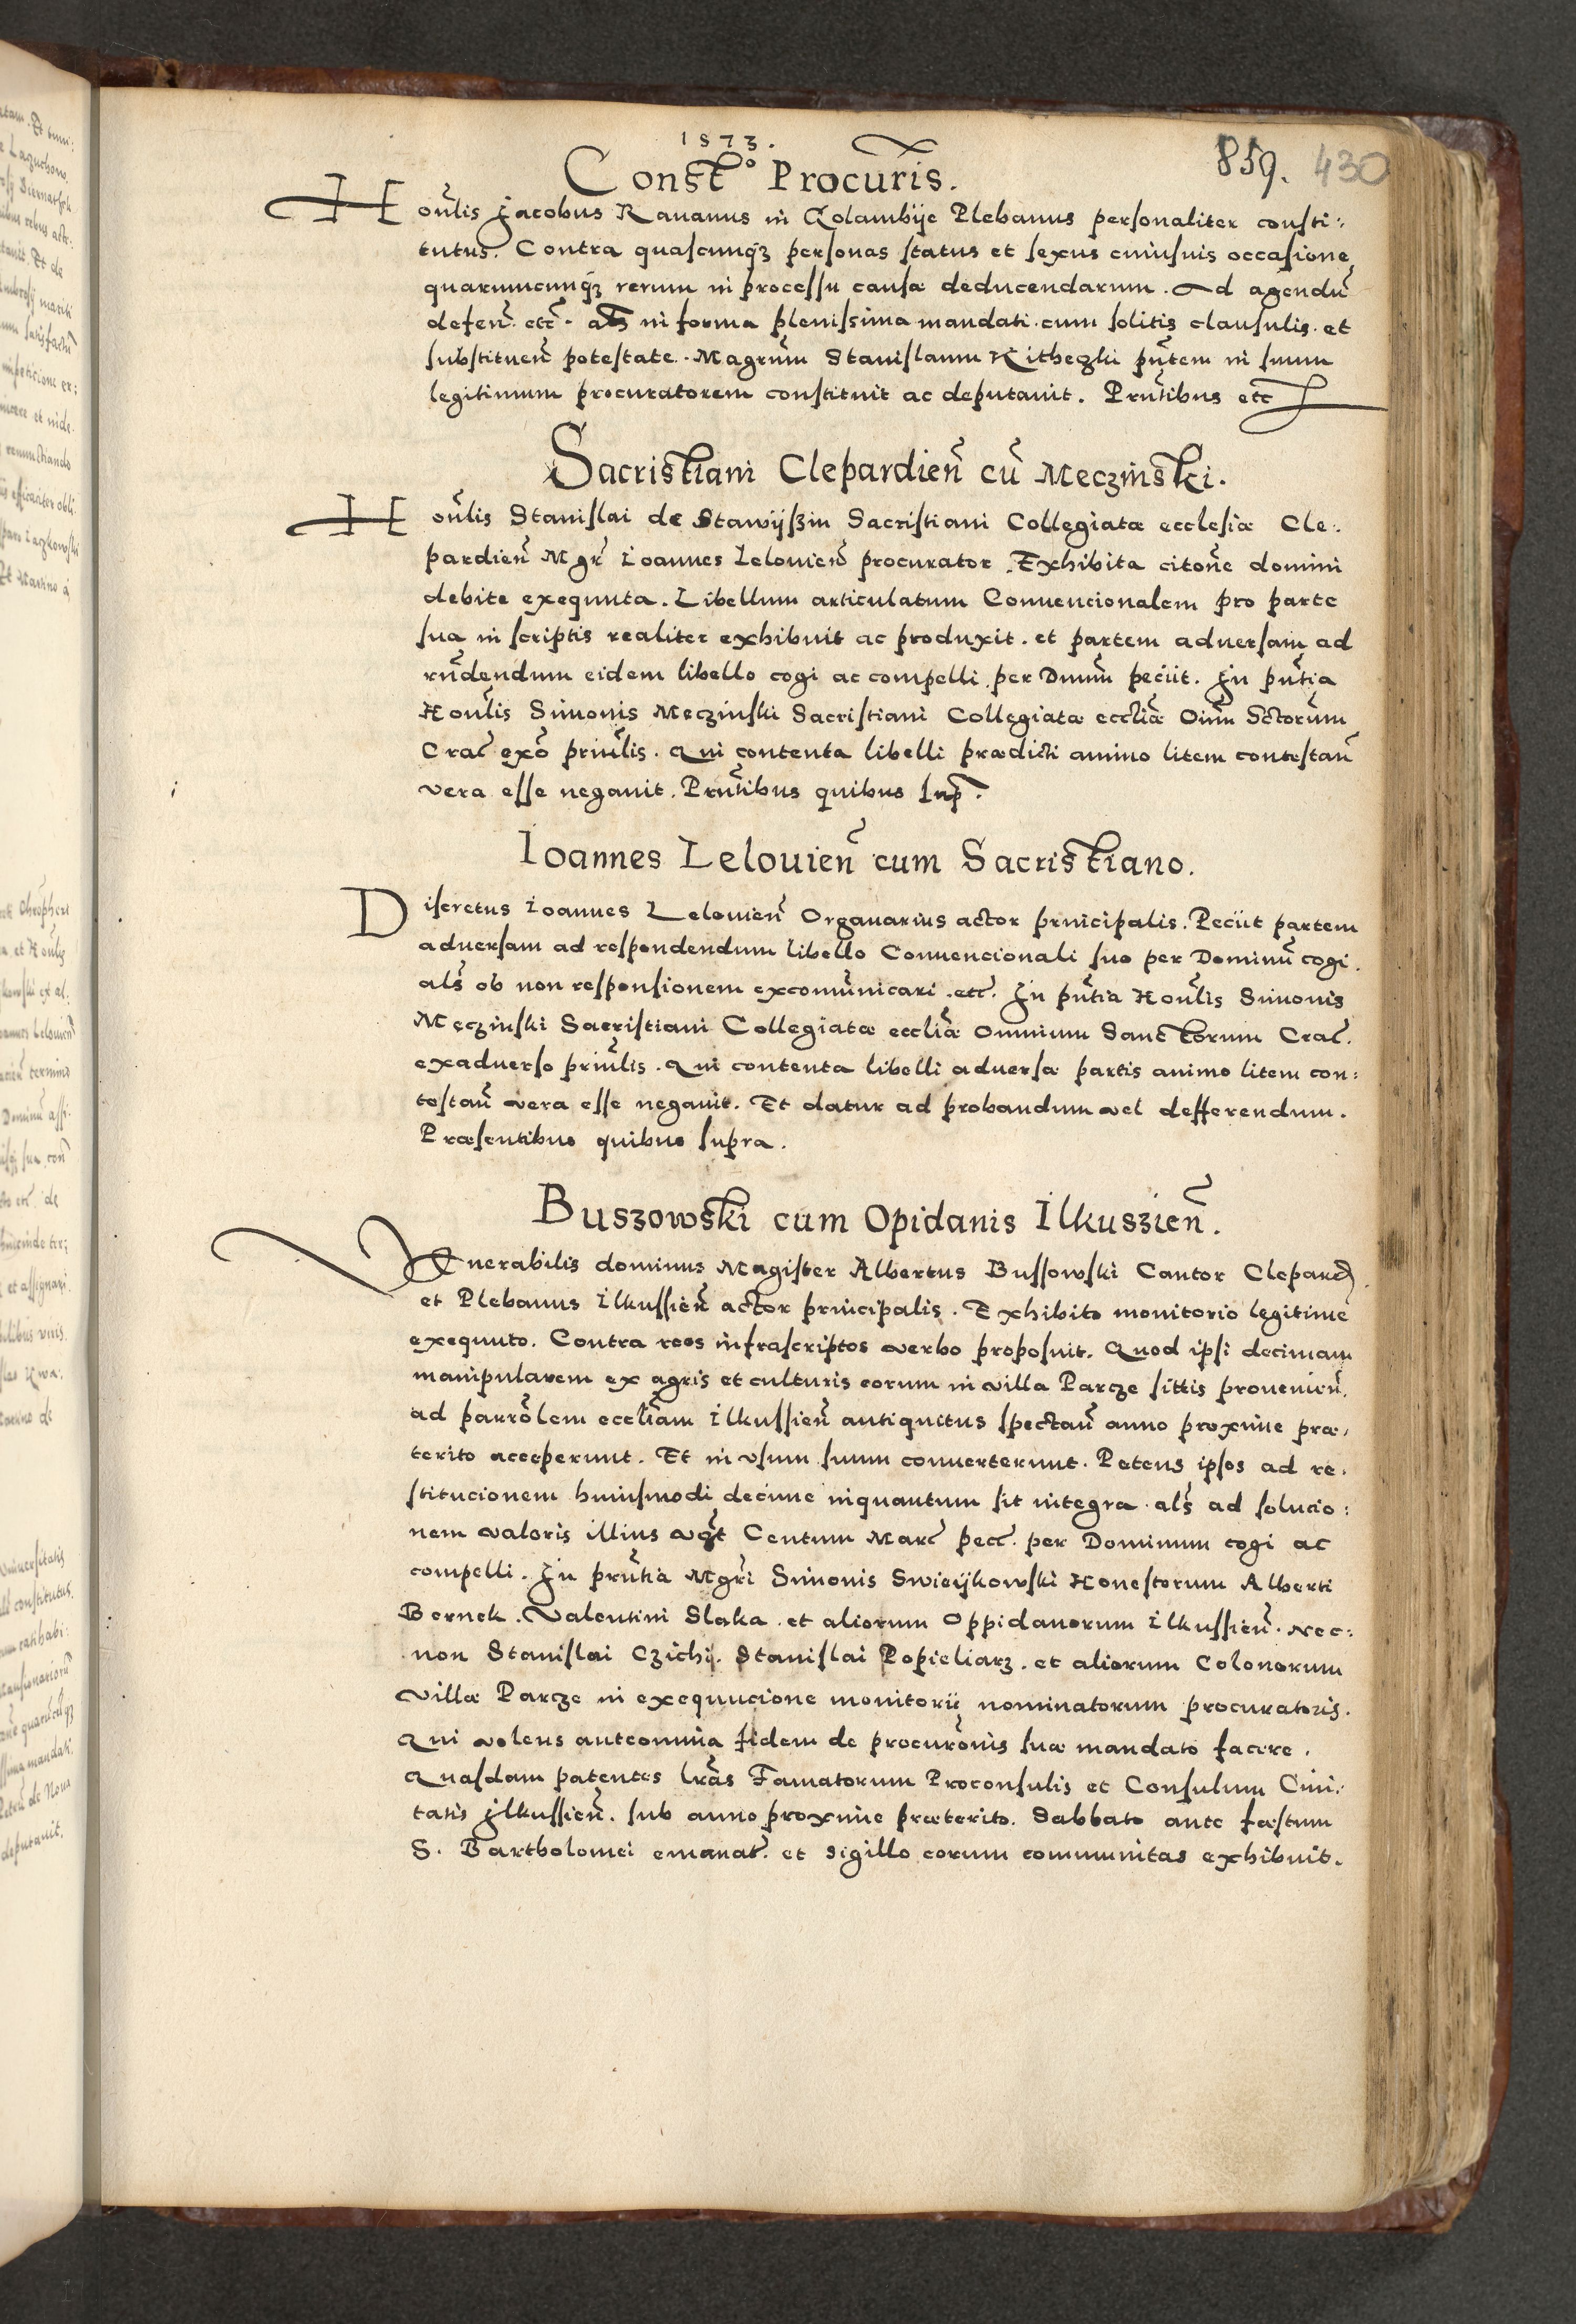 1573.
859. 430
Constō Procuris.
Hon̄lis Jacobus Rauanus in Kolambije Plebanus personaliter consti:
tutus. Contra quascunq̃ personas status et sexus cuiusuis occasione
quarumcunq̃ rerum in processu causæ deducendarum. Ad agendū
defen̄. etc̄. als̄ in forma plenissima mandati cum solitis clausulis et
substituen̄ potestate. Magrūm Stanislaum Kitheczki pn̄tem in suum
legitimum procuratorem constituit ac deputauit. Prn̄tibus etc̄
Sacristiani Clepardien̄ cū Meczinski.
Hon̄lis Stanislai de Stawijszin Sacristiani Collegiatæ ecclesiæ Cle:
pardien̄ Mgr̄ Ioannes Lelouien̄ procurator. Exhibita citōne domini
debite exequuta. Libellum articulatum Conuencionalem pro parte
sua in scriptis realiter exhibuit ac produxit. et partem aduersam ad
rn̄dendum eidem libello cogi ac compelli per Dnūm peciit. In pn̄tia
Hon̄lis Simonis Meczinski Sacristiani Collegiatæ ecclīæ Oīum Sctorūm
Crac̄ exō prin̄lis. Qui contenta libelli prædicti animo litem contestan̄
vera esse negauit. Prn̄tibus quibus sup̄.
Ioannes Lelouien̄ cum Sacristiano.
Discretus Ioannes Lelouien̄ Organarius actor principalis. Peciit partem
aduersam ad respondendum libello Conuencionali suo per Dominū cogi.
als̄ ob non responsionem excomūnicari. etc̄. In pn̄tia Hon̄lis Simonis
Meczinski Sacristiani Collegiatæ ecclīæ Omnium Sanctorum Crac̄.
exaduerso prin̄lis. Qui contenta libelli aduersæ partis animo litem con:
testan̄ vera esse negauit. Et datur ad probandum vel defferendum.
Præsentibus quibus supra.
Buszowski cum Opidanis Ilkuszien̄.
Venerabilis dominus Magister Albertus Bussowski Cantor Clepard.
et Plebanus Ilkussien̄ actor principalis. Exhibito monitorio legitime
exequuto. Contra reos infrascriptos verbo proposuit. Quod ipsi decimam
manipularem ex agris et culturis eorum in villa Parcze sittis prouenien̄.
ad parrōlem ecclīam Ilkussien̄ antiquitus spectan̄ anno proxime præ:
terito acceperunt. Et in vsum suum conuerterunt. Petens ipsos ad re:
stitucionem huiusmodi decime inquantum sit integra als̄ ad solucio:
nem valoris illius vqt̄ Centum Marc̄ pecc̄. per Dominum cogi ac
compelli. In prn̄tia Mgr̄i Simonis Swieijkowski Honestorum Alberti
Bernek. Valentini Slaka. et aliorum Oppidanorum Ilkussien̄. Nec:
non Stanislai Czichij. Stanislai Popieliarz. et aliorum Colonorum
villæ Parcze in exequucione monitorij nominatorum procuratoris.
Qui volens anteomnia fidem de procurōnis suæ mandato facere.
Quasdam patentes lrās Famatorum Proconsulis et Consulum Ciui:
tatis Jlkussien̄. sub anno proxime præterito. Sabbato ante fæstum
S. Bartholomei emanat̄. et sigillo eorum communitas exhibuit.